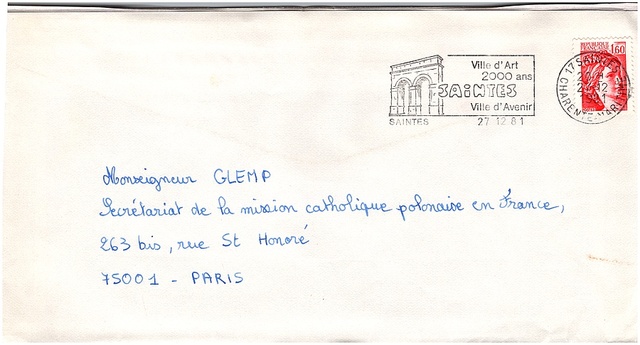 Ville d'Art
2000 ans
SAINTES
Ville d'Avenir
SAINTES 27 12 81
1,60
17 SAINTES
27-12
CHARENTE-MARITIME
Monseigneur GLEMP
Secrétariat de la mission catholique polonaise en France,
263 bis, rue St Honoré
75001 - PARIS